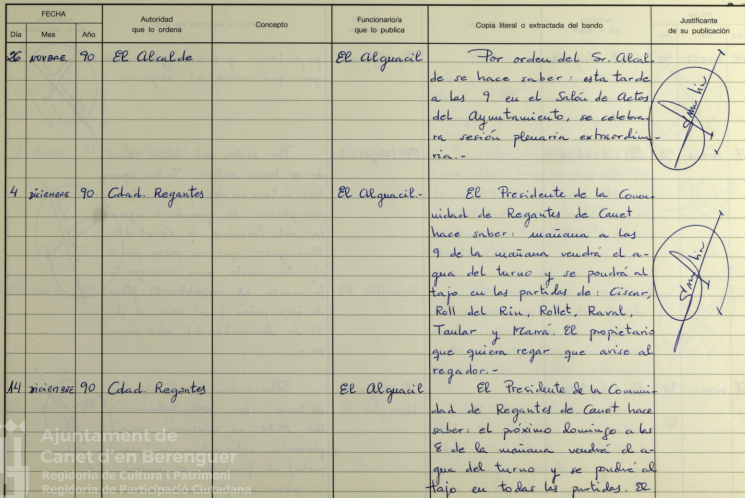 FECHA
Día Mes Año
Autoridad
que lo ordena
Concepto
Funcionario/a
que lo publica
Copia literal o extractada del bando
Justificante
de su publicación
26 NOVBRE. 90 El Alcalde El Alguacil Por orden del Sr. Alcal-
de se hace saber: esta tarde
a las 9 en el Salón de Actos
del Ayuntamiento, se celebra-
ra sesión plenaria extraordina-
ria.-
4 DICIEMBRE 90 Cdad. Regantes El Alguacil.- El Presidente de la Comu-
nidad de Regantes de Canet
hace saber: mañana a las
9 de la mañana vendrá el a-
gua del turno y se pondrá al
tajo en las partidas de: Ciscar,
Roll del Riu, Rollet, Raval,
Taular y Marrá. El propietario
que quiera regar que avise al
regador.-
14 DICIEMBRE 90 Cdad. Regantes El Alguacil El Presidente de la Comuni-
dad de Regantes de Canet hace
saber: el próximo domingo a las
8 de la mañana vendrá el a-
gua del turno y se pondrá al
tajo en todas las partidas. El
Ajuntament de
Canet d'en Berenguer
Regidoria de Cultura i Patrimoni
Regidoria de Participació Ciutadana